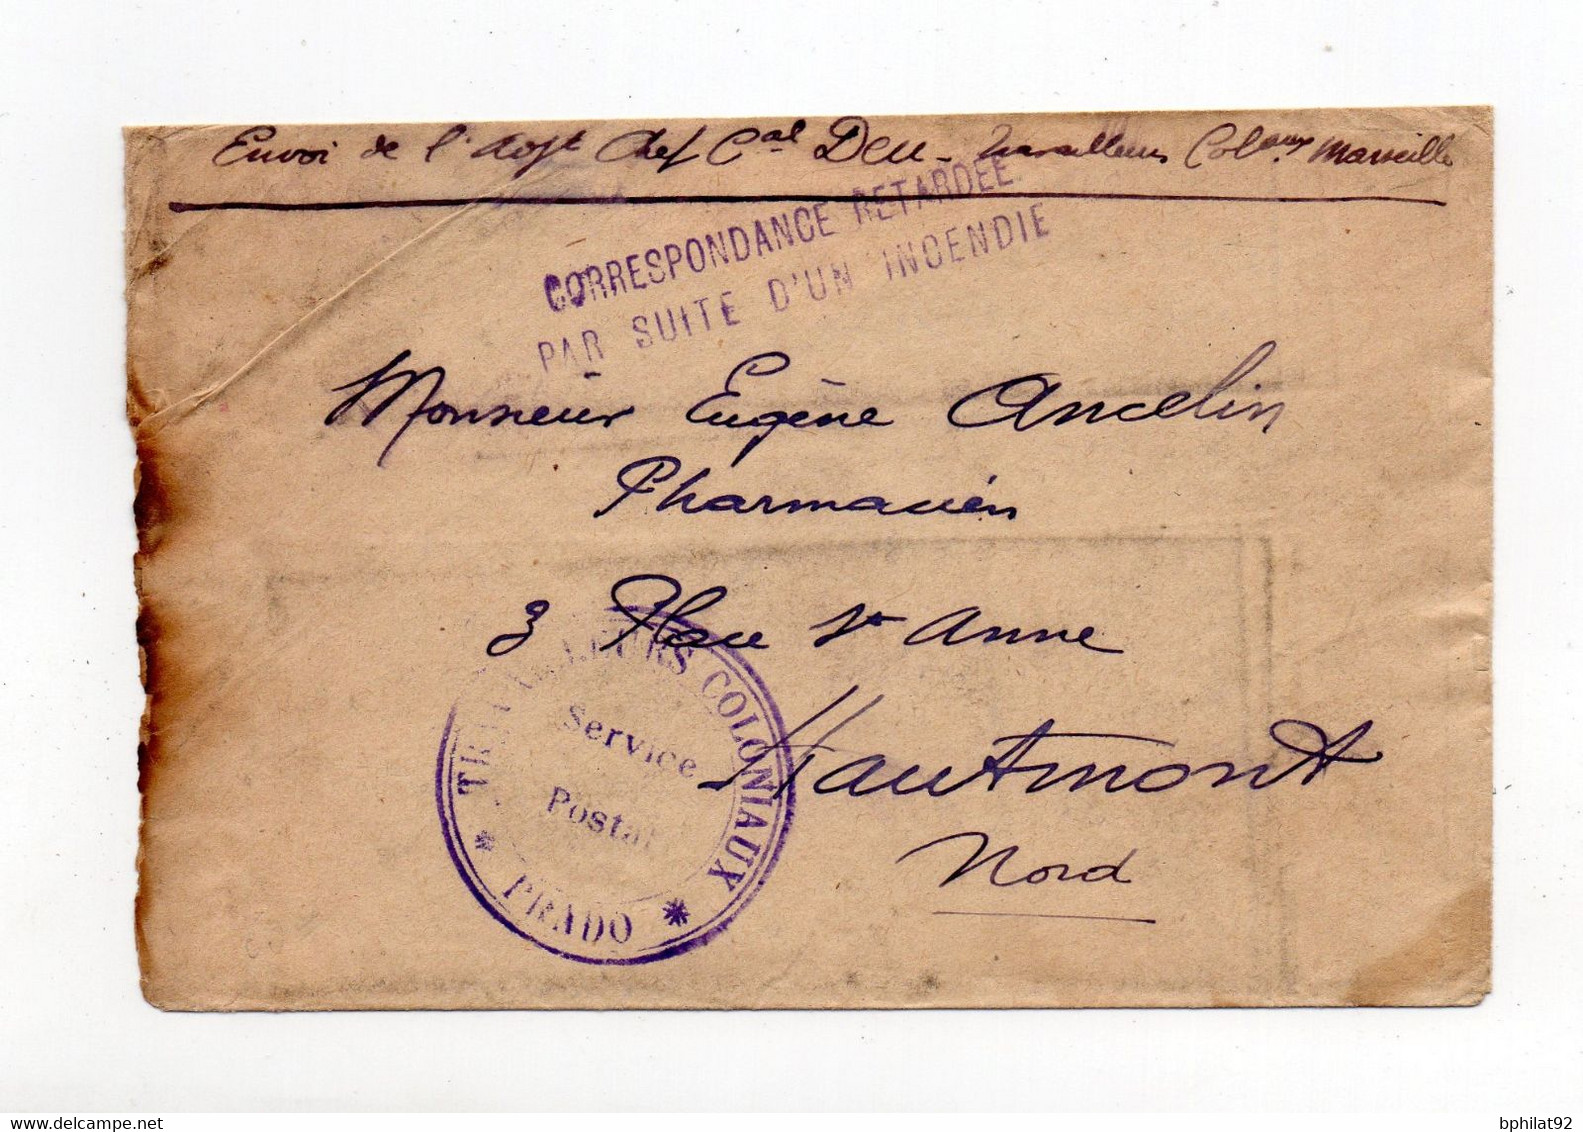 Envoi de l'Adjt Chef Cal Deu - Travailleurs Colaux. Marseille
CORRESPONDANCE RETARDÉE
PAR SUITE D'UN INCENDIE
Monsieur Eugène Ancelin
Pharmacien
3 Place St Anne
Hautmont
Nord
TRAVAILLEURS COLONIAUX
Service
Postal
* PRADO *
bphilat92